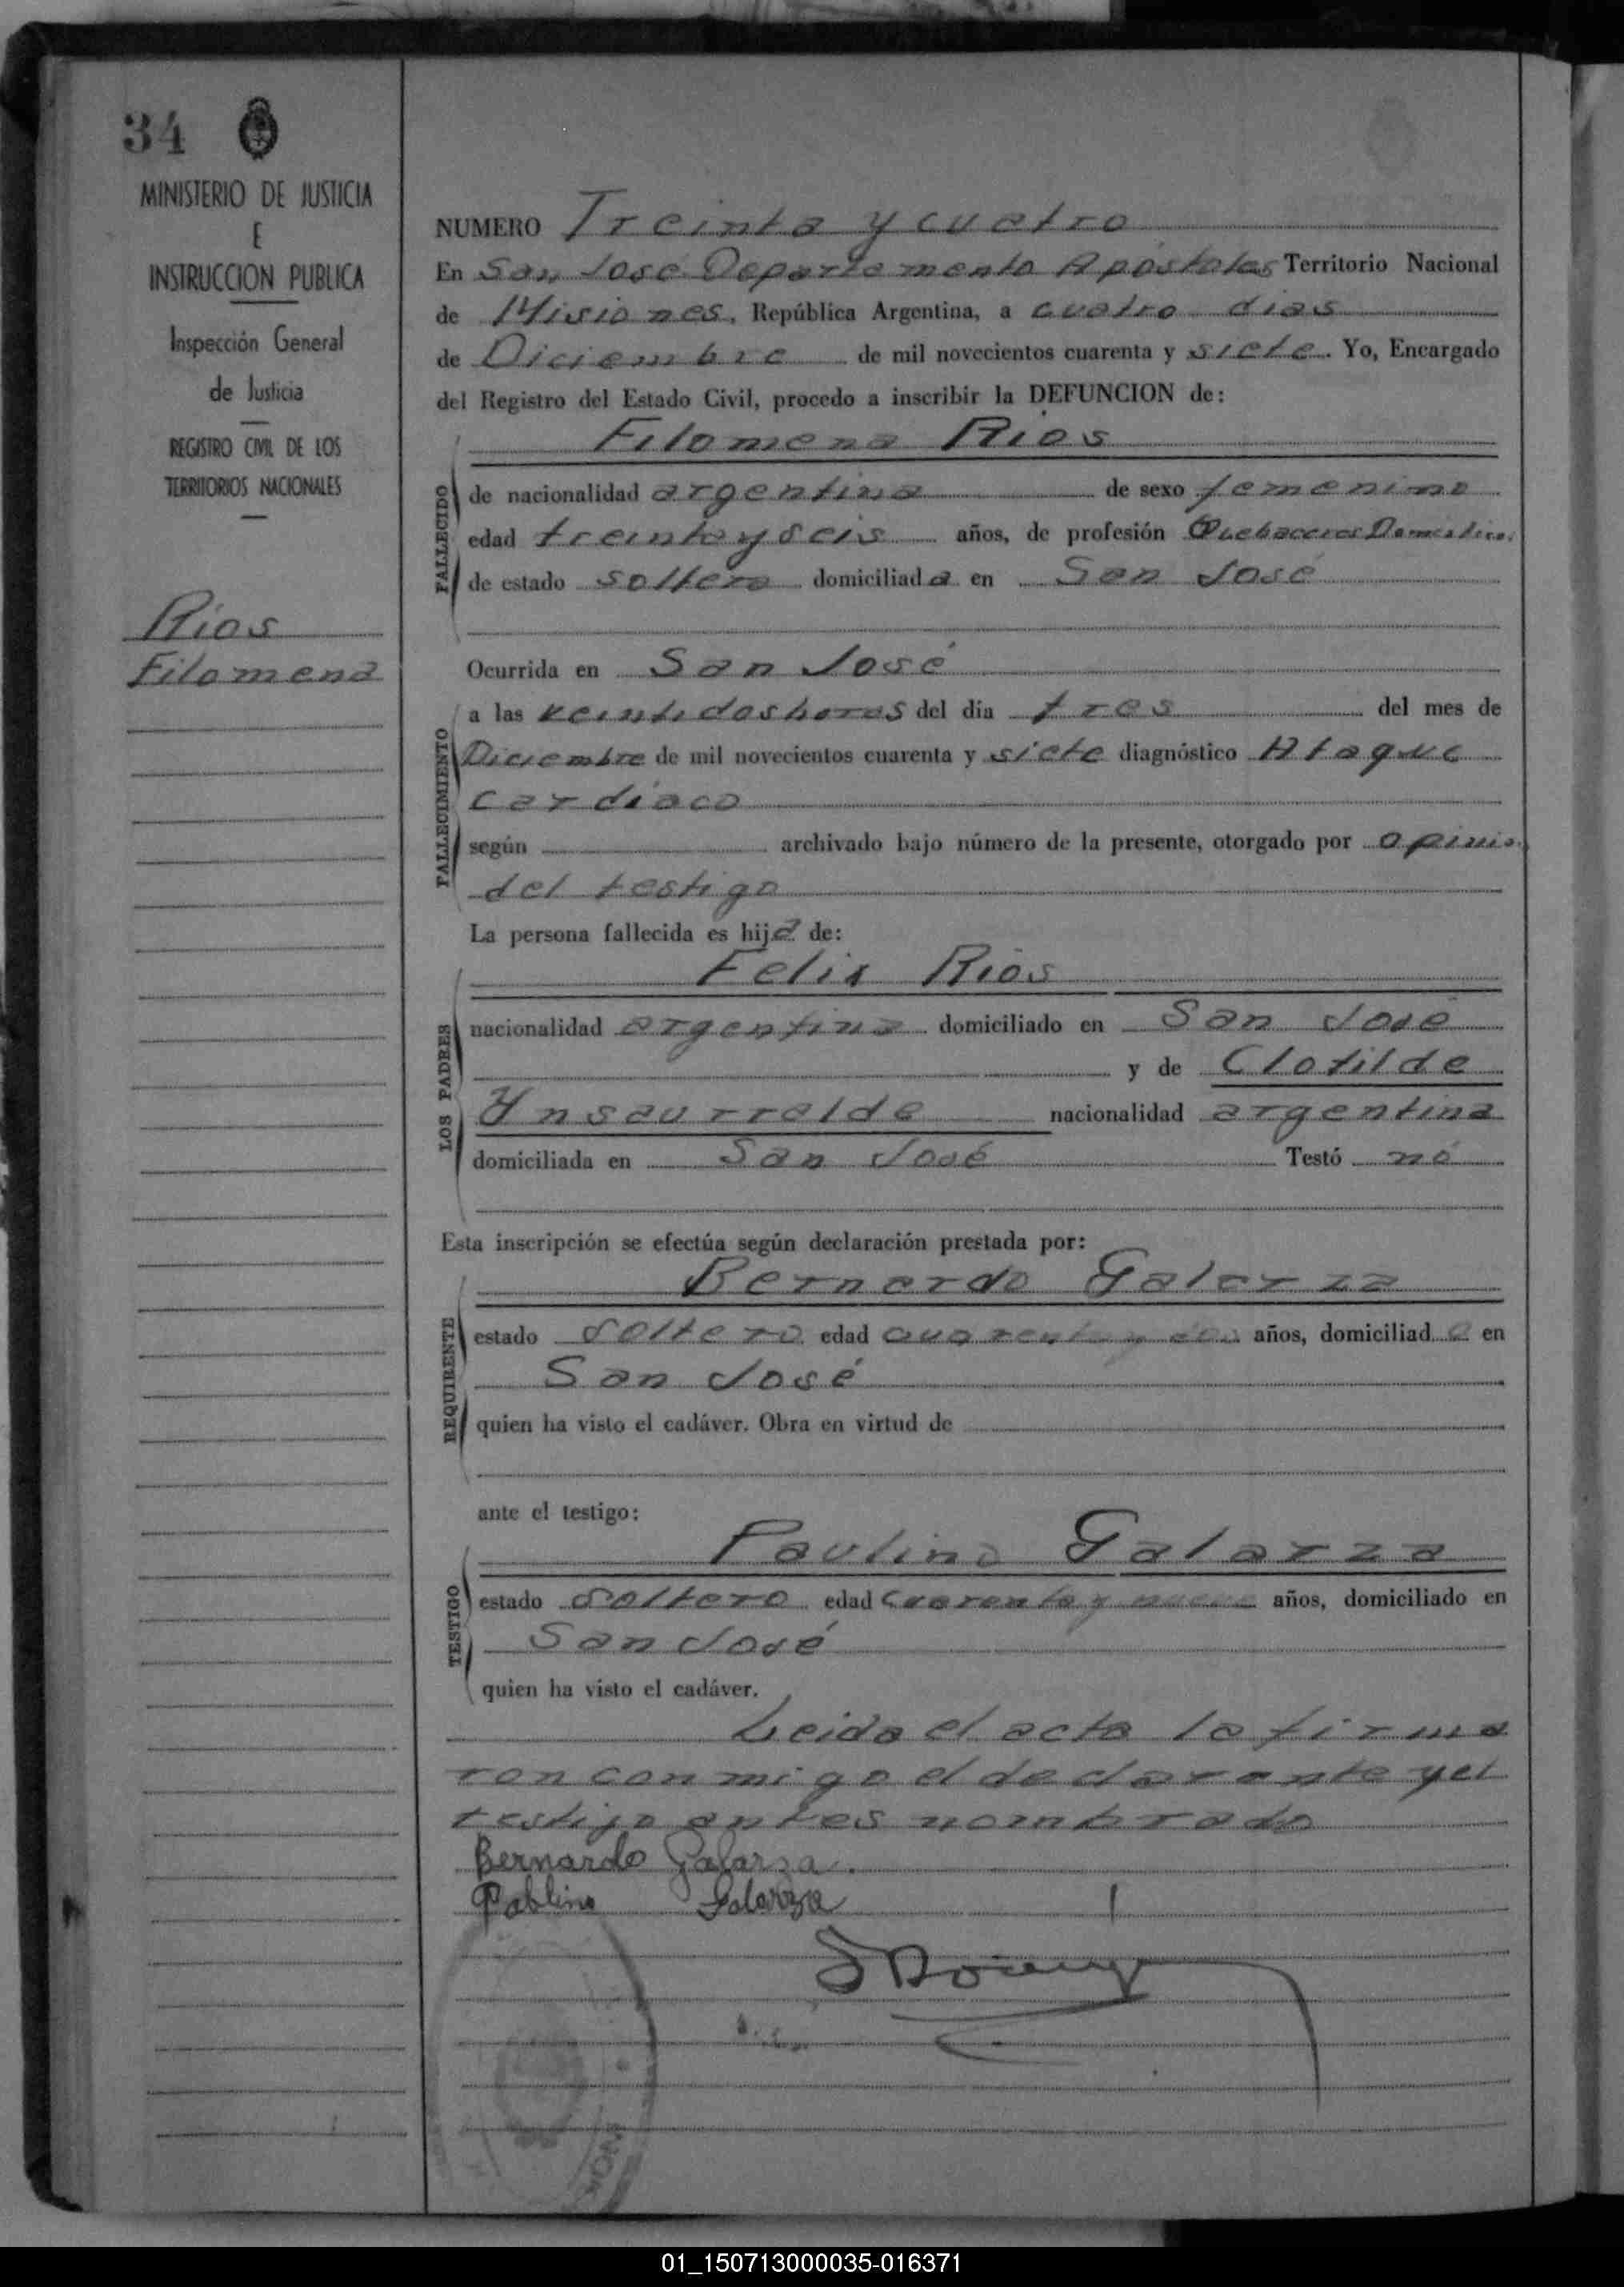 34
MINISTERIO DE JUSTICIA
E
INSTRUCCION PUBLICA
Inspección General
de Justicia
REGISTRO CIVIL DE LOS
TERRITORIOS NACIONALES
Rios
Filomena
NUMERO Treinta y cuatro
En San José Departamento Apóstoles Territorio Nacional
de Misiones, República Argentina, a cuatro dias
de Diciembre de mil novecientos cuarenta y siete. Yo, Encargado
del Registro del Estado Civil, procedo a inscribir la DEFUNCION de:
Filomena Rios
FALLECIDO
de nacionalidad argentina de sexo femenino
edad treinta y seis años, de profesión Quehaceres Domésticos
de estado soltera domiciliada en San José
Ocurrida en San José
FALLECIMIENTO
a las veintidos horas del día tres del mes de
Diciembre de mil novecientos cuarenta y siete diagnóstico Ataque
cardíaco
según archivado bajo número de la presente, otorgado por opinio
del testigo
La persona fallecida es hija de:
Felix Rios
LOS PADRES
nacionalidad argentina domiciliado en San José
y de Clotilde
Ynsaurralde nacionalidad argentina
domiciliada en San José Testó nó
Esta inscripción se efectúa según declaración prestada por:
Bernardo Galarza
REQUIRENTE
estado soltero edad cuarenta y dos años, domiciliado en
San José
quien ha visto el cadáver. Obra en virtud de
ante el testigo:
Paulino Galarza
TESTIGO
estado soltero edad cuarenta y nueve años, domiciliado en
San José
quien ha visto el cadáver.
Leida el acta la firma
ron conmigo el declarante y el
testigo antes nombrado
Bernardo Galarza.
Pablino Galarza
01_150713000035-016371